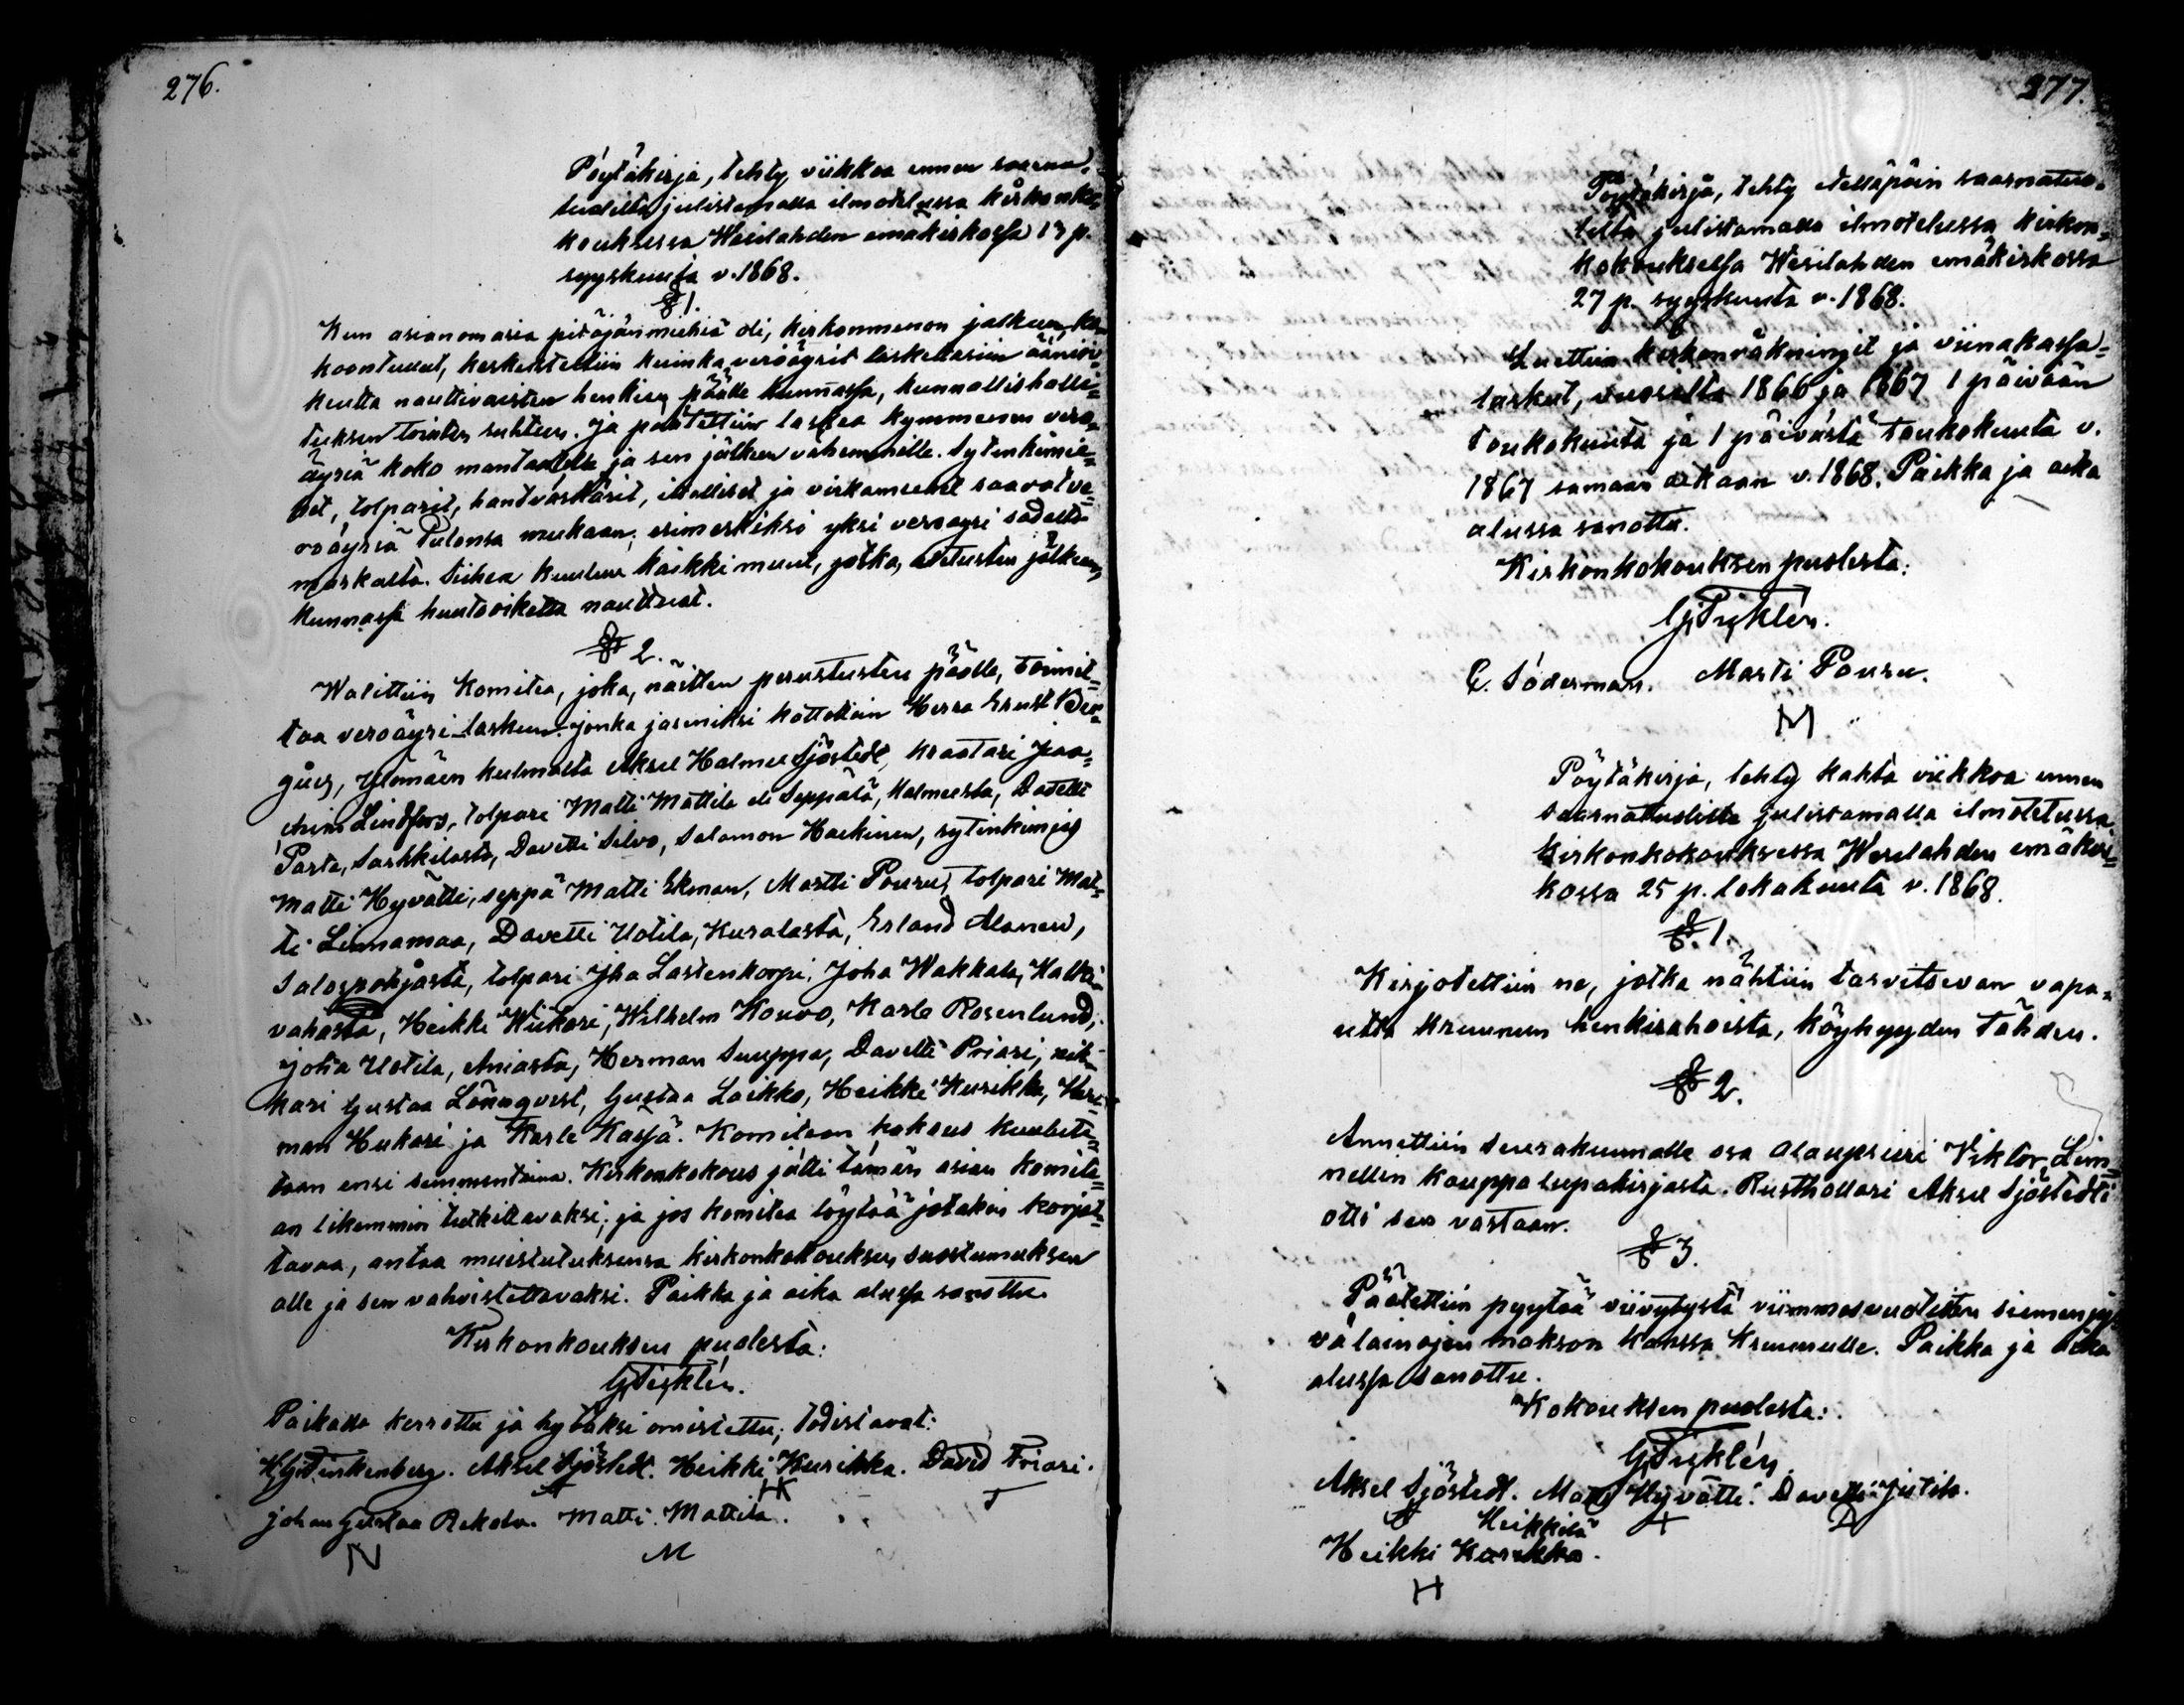 276.
Pöytäkirja, tehty viikkoa ennen saarna-
tuolilta julistamalla ilmotetussa kirkonko-
kouksessa Wesilahden emäkirkossa 13 p.
syyskuuta v. 1868.
§ 1.
Kun asianomasia pitäjänmiehiä oli, kirkonmenon jälkeen, ko-
koontunut, keskusteltiin kuinka veroäyrit laskettasiin äänioi-
keutta nauttivaisten henkien päälle kunnassa, kunnallishalli-
tuksen tointen suhteen. Ja päätettiin laskea kymmenen vero-
äyriä koko mantaalille ja sen jälkeen vähemmille. Sytinkimie-
het, tolparit, hantvärkärit, itselliset ja virkamiehet saavat ve-
roäyriä Tulonsa mukaan; esimerkiksi yksi veroäyri sadalta
markalta. Siihen kuuluu kaikki muut, jotka, asetusten jälkeen,
kunnassa huutooiketta nauttivat.
§ 2.
Walittiin Komitea, joka, näitten perustusten päälle, toimit-
taa veroäyri-laskun; jonka jäseniksi kottettiin Herra Ernst Ber-
gius, Ylämäen kulmalta Aksel Halmee Sjöstedt, kraatari Jaa-
Lindfors, tolpari Matti Mattila eli Seppälä, Halmeesta, Davetti
Parta, Sarkkilasta, Davetti Silvo, Salomon Hackinen, sytinkimies
Matti Hyvätti, seppä Matti Ekman, Martti Pouru, tolpari Mat-
ti Linnamaa, Davetti Uotila, Kuralasta, Erland Alanen,
Salospohjasta, tolpari Jha Lastenkorpi, Joha Wakkala, Halki-
vahasta, Heikki Wiikari, Wilhelm Kouvo, Karle Rosenlund,
Joha Uotila, Aniasta, Herman Suuppa, Davetti Priari, nik-
kari Gustaa Lönnqvist, Gustaa Laikko, Heikki Kurikka, Her-
man Hukari ja Karle Kassä. Komitean kokous kuulute-
taan ensi sunnuntaina. Kirkonkokous jätti tämän asian komite-
an likemmin tutkittavaksi; ja jos komitea löytää jotakin korjat-
tavaa, antaa muistutuksensa kirkonkokouksen suostumuksen
alle ja sen vahvistettavaksi. Paikka ja aika alussa sanottu.
Kirkonkouksen puolesta:
G. Ticklén.
Paikalla kerrottu ja hyväksi omistettu; todistavat:
Aksel Sjöstedt. Heikki Kurikka. David Friari.
HK
Johan Gustaa Rekola. Matti Mattila.
N M
277.
Pöytäkirja, tehty edelläpäin saarnatuo-
lilta julistamalla ilmotetussa kirkon-
kokouksessa Wesilahden emäkirkossa
27 p. syyskuuta v. 1868.
Luettiin Kirkonräkningit ja viinakassa-
laskut, vuosilta 1866 ja 1867 1 päivään
toukokuuta ja 1 päivästä toukokuuta v.
1867 samaan aikaan v. 1868. Paikka ja aika
alussa sanottu.
Kirkonkokouksen puolesta:
G. Ticklén.
C. Söderman. Marti Pouru.
M
Pöytäkirja, tehty kahta viikkoa ennen
saarnatuolista julistamalla ilmotetussa
kirkonkokouksessa Wesilahden emäkir-
kossa 25 p. lokakuuta v. 1868.
§. 1.
Kirjotettiin ne, jotka nähtiin tarvitsevan vapa-
utta kruunun henkirahoista, köyhyyden tähden.
§ 2.
Annettiin seurakunnalle osa alaupsieri Viktor Lin-
nellin kauppalupakirjasta. Rusthollari Aksel Sjöstedti
otti sen vastaan.
§ 3.
Päätettiin pyytää viivytystä viimmesvuotisten siemenjy-
välainojen makson kanssa Kruunulle. Paikka ja aika
alussa sanottu.
Kokouksen puolesta:
G. Ticklén
Aksel Sjöstedt. Matti Hyvätti. Davetti Jutila.
Heikkilä
Heikki Kurikka.
H